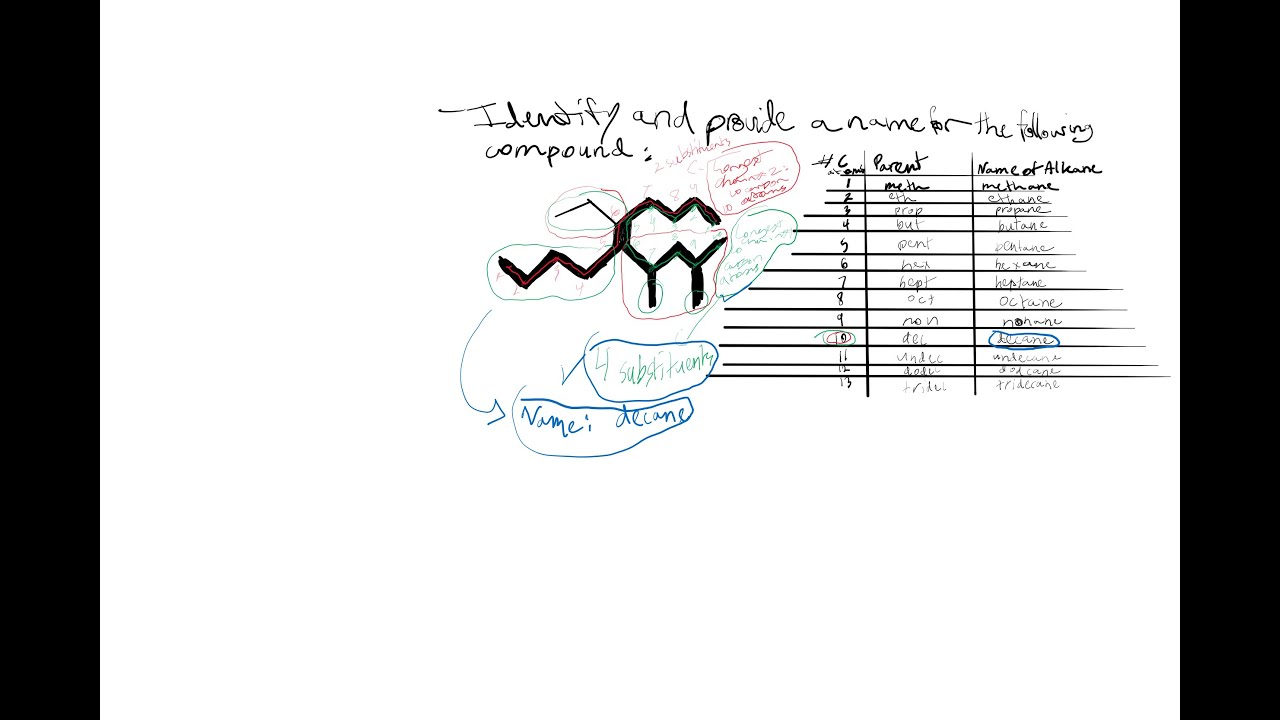 -Identify and provide a name for the following
compound:
2 substituents
Longest
10 carbon
atoms
4 substituents
Name: decane
# C Parent Name of Alkane
atoms
1 meth methane
2 eth ethane
3 prop propane
4 but butane
5 pent pentane
6 hex hexane
7 hept heptane
8 oct octane
9 non nonane
10 dec decane
11 undec undecane
12 dodec dodcane
13 tridec tridecane